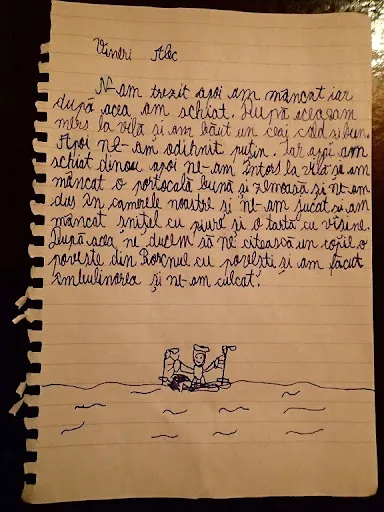 Vineri Alec
N am trezit apoi am mâncat iar
după acea am schiat. După aceasam
mers la vilă și am băut un ceai cald si bun.
Apoi ne-am odihnit putin. Iar apoi am
schiat dinou apoi ne-am întors la vilă și am
mâncat o portocală bună și zemoasă și ne-am
dus în camerele noastre și ne-am jucat si am
mâncat șnițel cu piure și o tartă cu visine.
După acea ne ducem să ne citească un copil o
poveste din Borcnul cu povesti și am făcut
îmbulinarea și ne-am culcat.